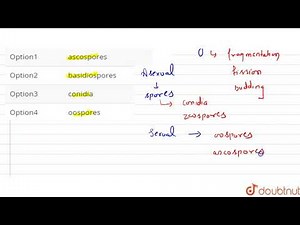 Option1 ascospores
Option2 basidiospores
Option3 conidia
Option4 oospores
① ↳ fragmentation
fission
budding
Asexual
↓
spores
↳ conidia
zoospores
Sexual → oospores
ascospores
doubtnut